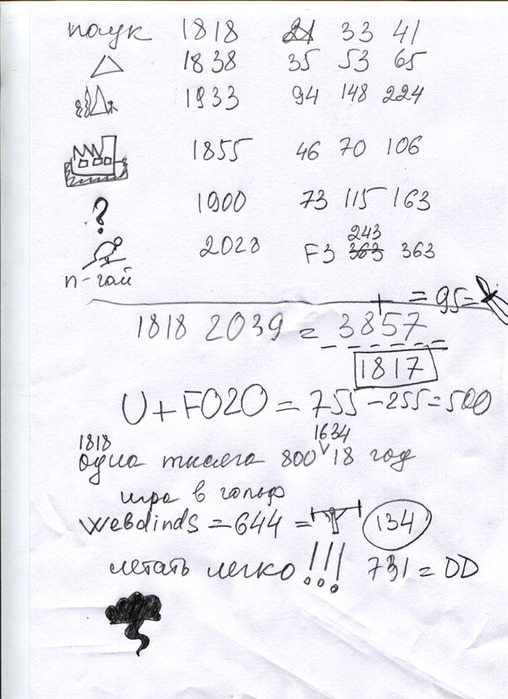 паук 1818 21 33 41
1838 35 53 65
1933 94 148 224
1855 46 70 106
? 1900 73 115 163
2028 F3 363 243 363
п-гай
+ = 95 =
1818 2039 = 3857
1817
U + F020 = 755 - 255 = 500
1818 1634
одна тысяга 800 V 18 год
игра в гольф
Webdinds = 644 = 134
летать легко !!! 731 = DD